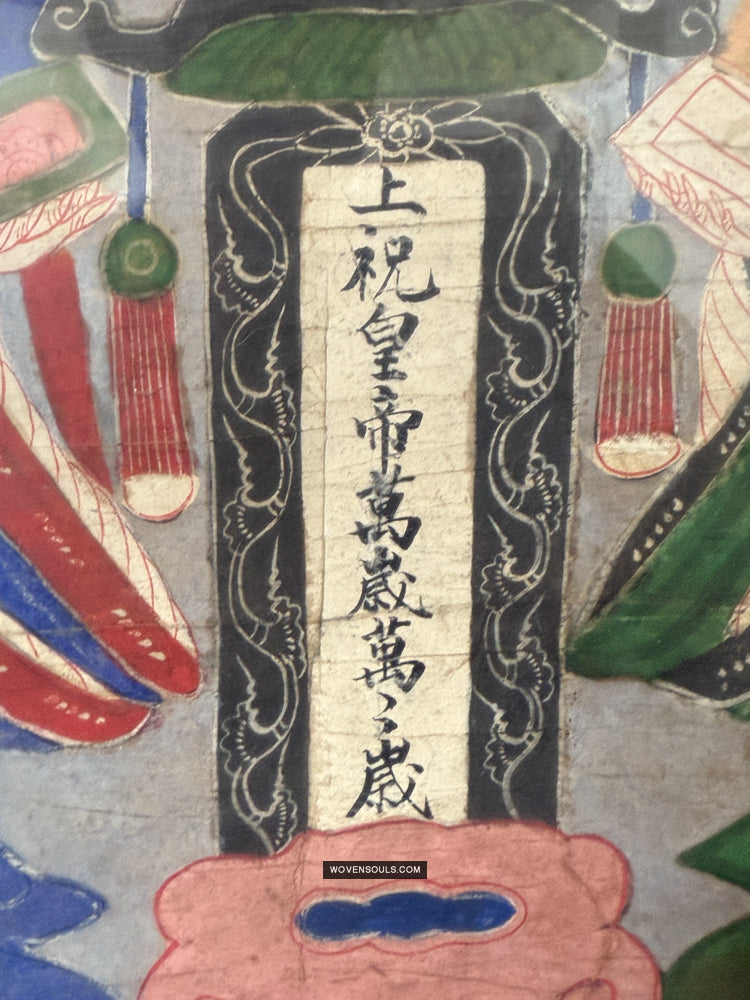 上祝皇帝萬歲萬〻歲
WOVENSOULS.COM